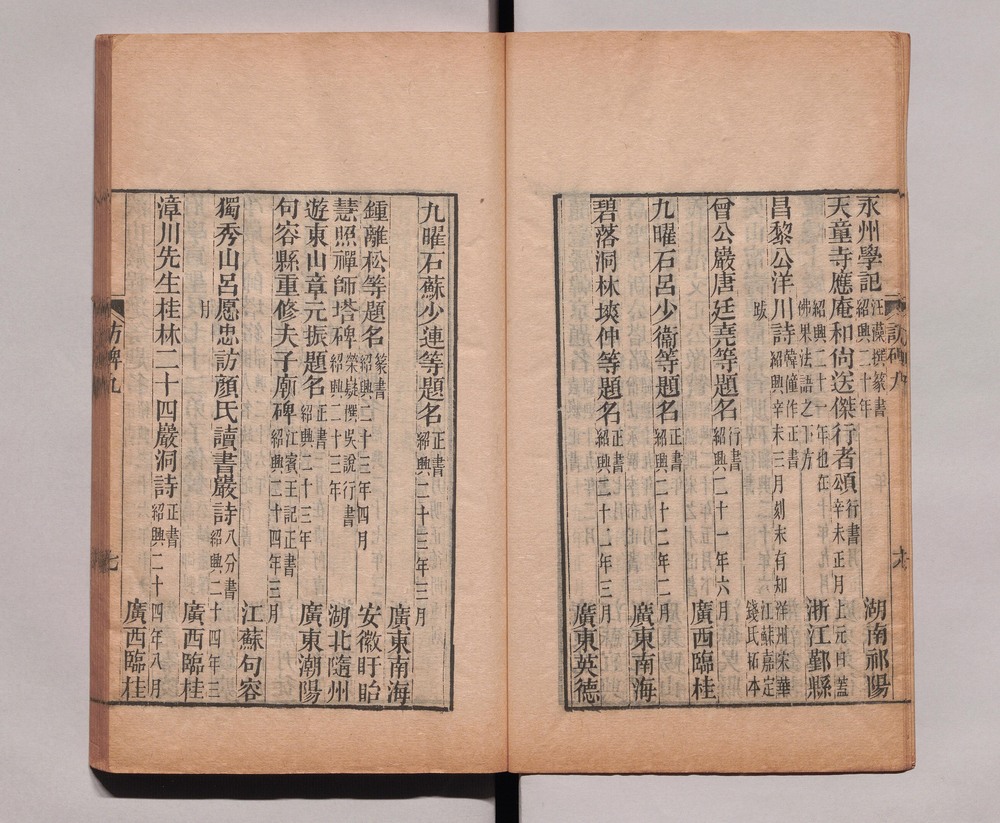 永州學記汪藻撰篆書紹興二十年 湖南祁陽
天童寺應庵和尚送傑行者頌行書辛未正月上元日蓋紹興二十一年也在佛果法語之下方 浙江鄞縣
昌黎公洋川詩韓僮作正書紹興辛未三月刻末有知洋州宋華跋 江蘇嘉定錢氏拓本
曾公巖唐廷堯等題名行書紹興二十一年六月 廣西臨桂
九曜石呂少衞等題名正書紹興二十二年二月 廣東南海
碧落洞林㙷仲等題名正書紹興二十二年三月 廣東英德
訪碑九
九曜石蘇少連等題名正書紹興二十三年三月 廣東南海
鍾離松等題名篆書紹興二十三年四月 安徽盱眙
慧照禪師塔碑榮嶷撰吳說行書紹興二十三年 湖北隨州
遊東山章元振題名正書紹興二十三年 廣東潮陽
句容縣重修夫子廟碑江賓王記正書紹興二十四年三月 江蘇句容
獨秀山呂愿忠訪顏氏讀書巖詩八分書紹興二十四年三月 廣西臨桂
漳川先生桂林二十四巖洞詩正書紹興二十四年八月 廣西臨桂
訪碑九
七